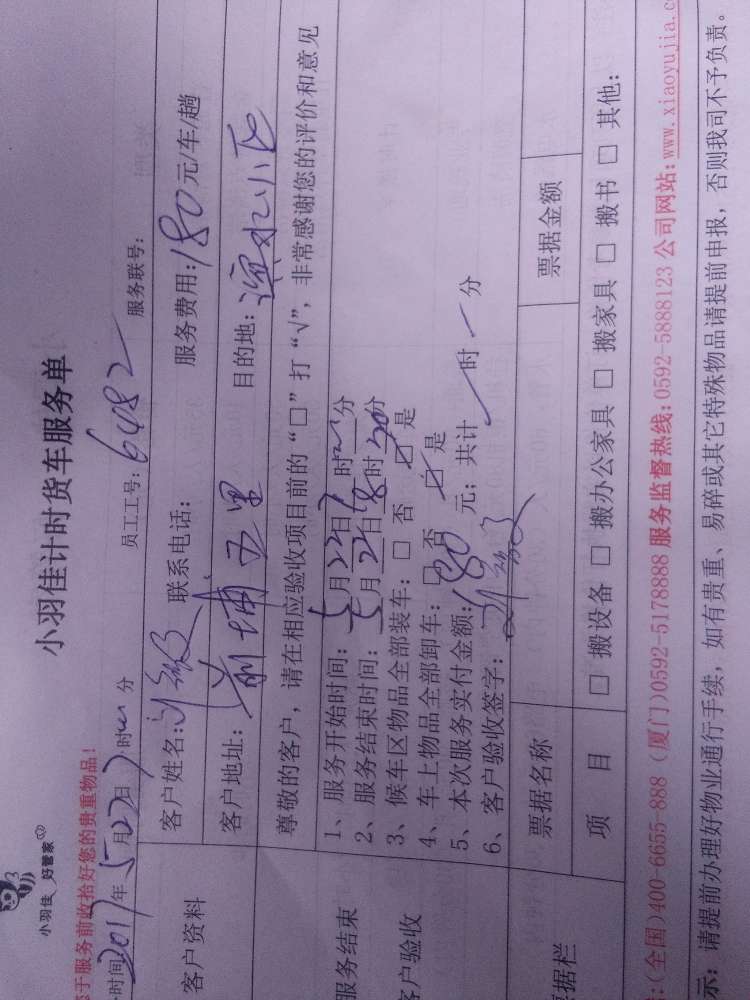 小羽佳 好管家
小羽佳计时货车服务单
于服务前收拾好您的贵重物品！
时间2017年5月22日7时 分 员工工号：6482 服务联号：
客户资料
客户姓名：刘 联系电话： 服务费用：180元/车/趟
客户地址：前埔五里 目的地：滨水小区
服务结束
客户验收
尊敬的客户，请在相应验收项目前的“□”打“√”，非常感谢您的评价和意见
1、服务开始时间：5月22日 时 分
2、服务结束时间：5月22日8时20分
3、候车区物品全部装车：□ 否 ☑ 是
4、车上物品全部卸车：□ 否 ☑ 是
5、本次服务实付金额：180元；共计 时 分
6、客户验收签字：刘
据栏
票据名称 票据金额
项 目 □ 搬设备 □ 搬办公家具 □ 搬家具 □ 搬书 □ 其他：
：(全国)400-6655-888（厦门)0592-5178888 服务监督热线：0592-5888123 公司网站：www.xiaoyujia.c
示：请提前办理好物业通行手续，如有贵重、易碎或其它特殊物品请提前申报，否则我司不予负责。